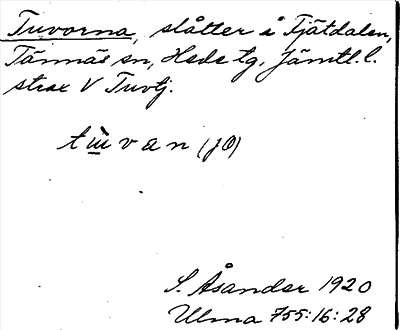 Tuvorna, slåtter å Fjätdalen,
Tännäs sn, Hede tg, Jämtl. l.
strax V Tuvtj.
tɯ̀van (jO)
S. Åsander 1920
Ulma 755:16:28